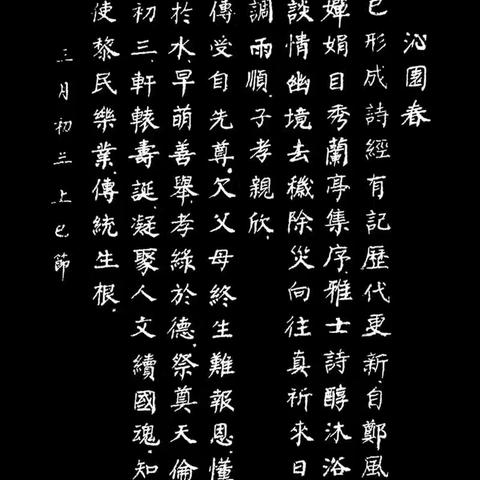 沁園春
已形成詩經有記歷代更新.自鄭風
嬋娟目秀蘭亭集序.雅士詩醇沐浴
談情幽境去穢除災向往真祈來日
調雨順.子孝親欣.
傳受自先尊.欠父母終生難報恩.懂
於水.早萌善舉.孝緣於德.祭奠天倫
初三.軒轅壽誕.凝聚人文續國魂.知
使黎民樂業.傳統生根.
三月初三上巳節